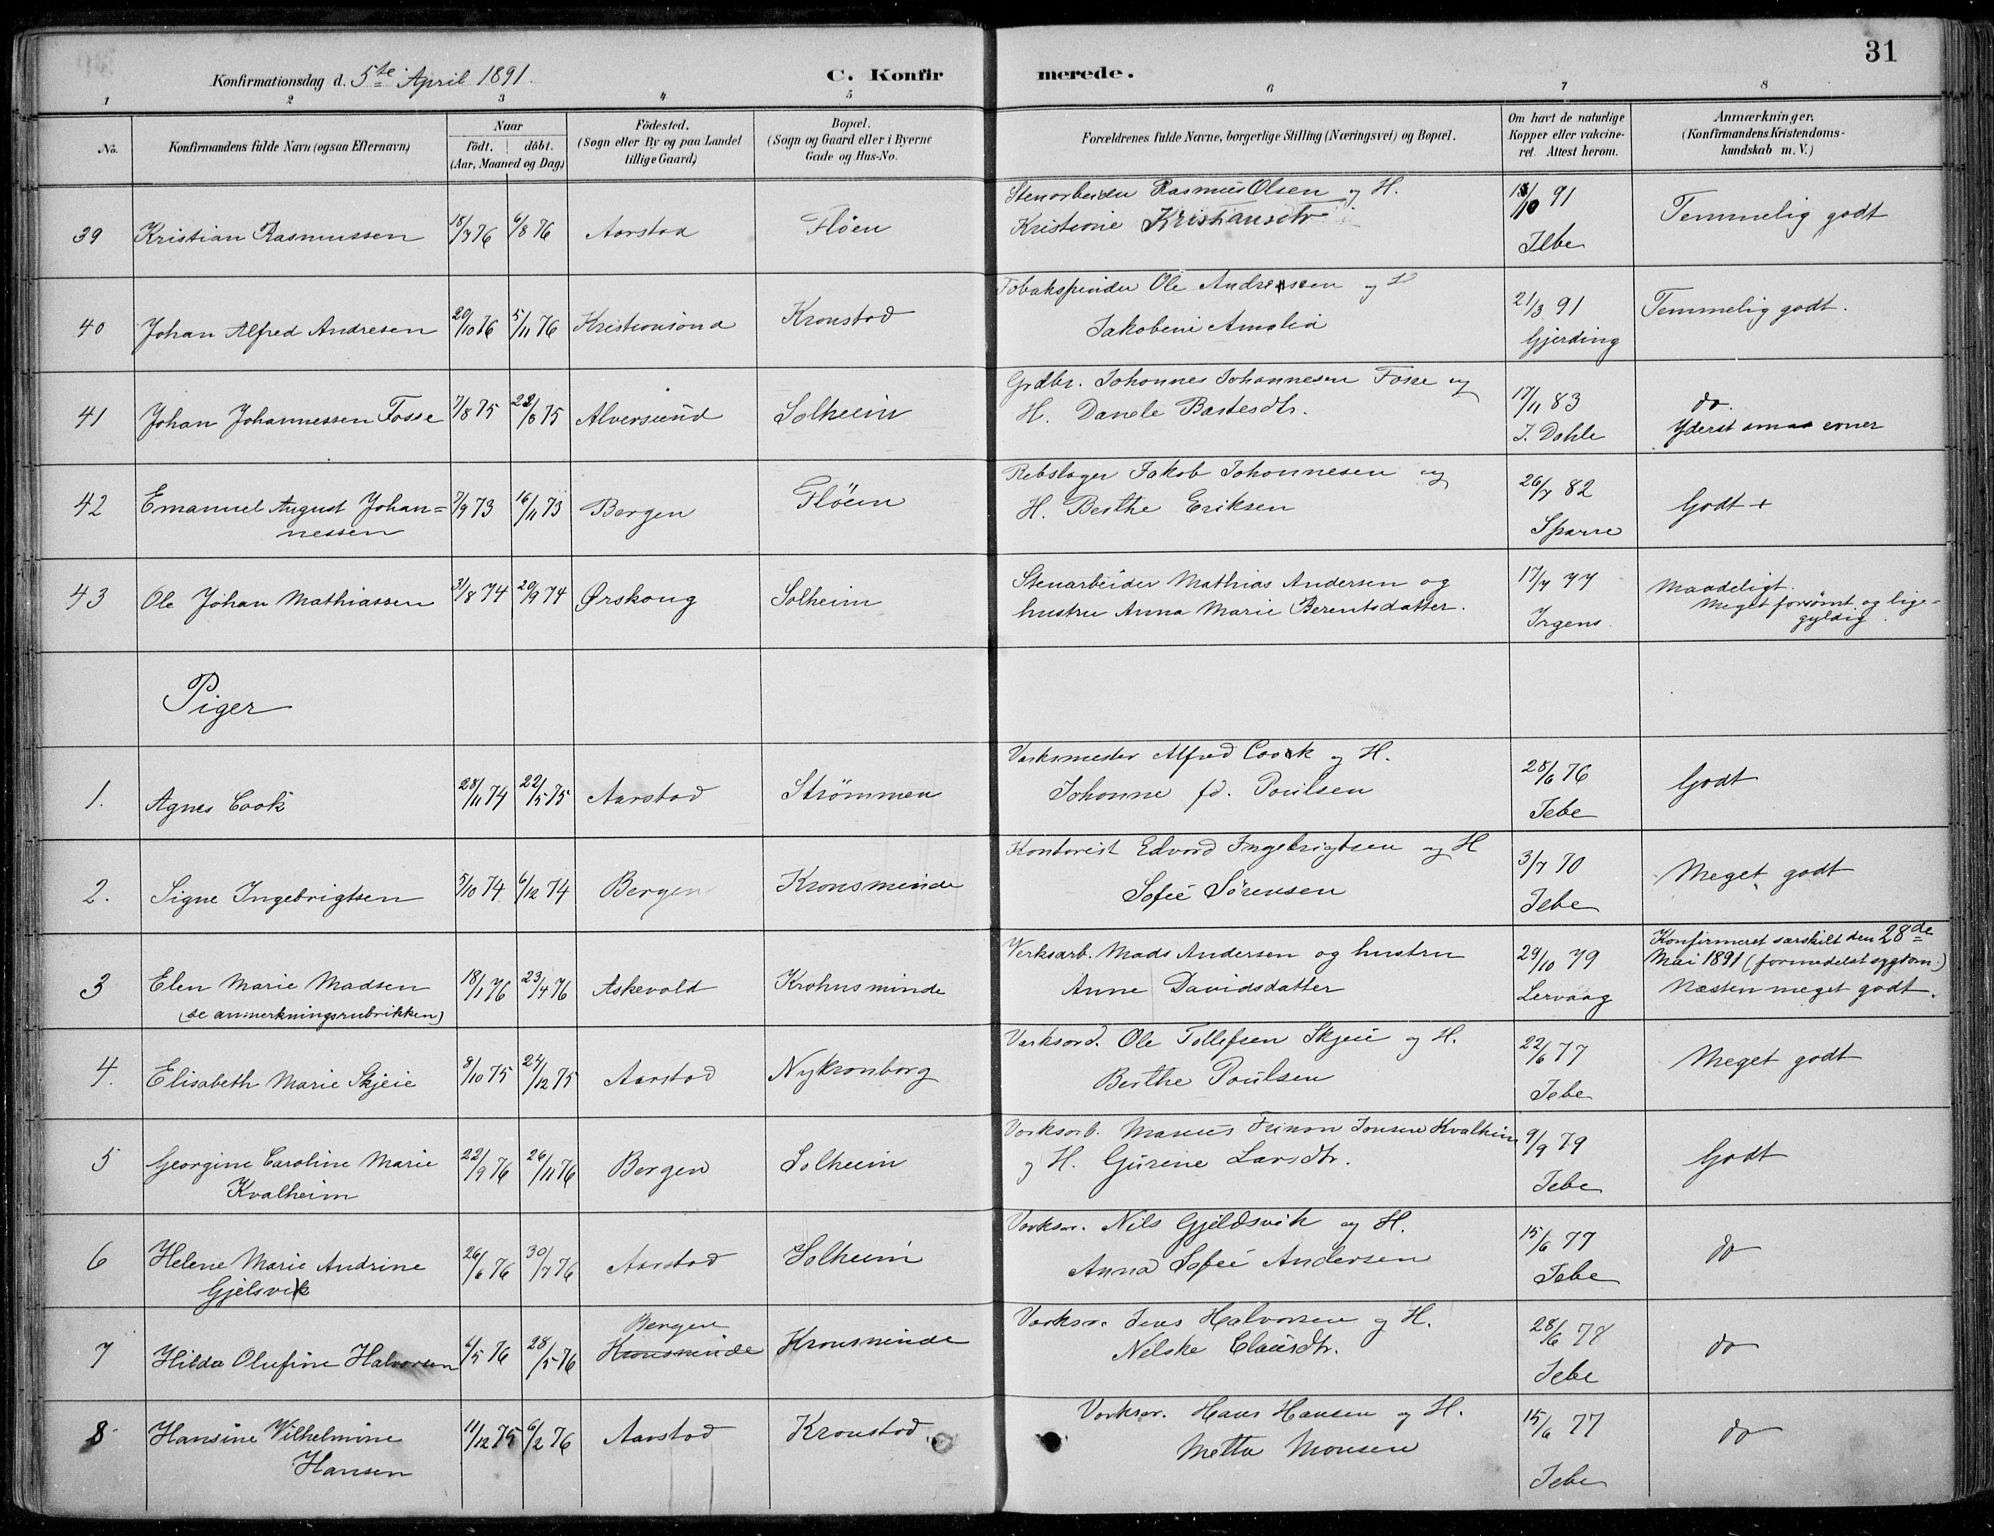 31
Konfirmationsdag d. 5te April 1891.
C. Konfirmerede.
1 2 3 4 5 6 7 8
No.
Konfirmandens fulde Navn (ogsaa Efternavn)
Naar
Födt. döbt.
(Aar, Maaned og Dag)
Födested.
(Sogn eller By og paa Landet
tillige Gaard)
Bopæl.
(Sogn og Gaard eller i Byerne
Gade og Hus-No.
Forældrenes fulde Navne, borgerlige Stilling (Næringsvei) og Bopæl.
Om havt de naturlige
Kopper eller vakcine-
ret. Attest herom.
Anmærkninger.
(Konfirmandens Kristendoms-
kundskab m. V.)
39 Kristian Rasmussen 18/7 76 6/8 76 Aarstad Fløen
Stenarbeider Rasmus Olsen og H.
Kristine Kristiansdtr
/10 91
Jebe
Temmelig godt
40 Johan Alfred Andresen 20/10 76 5/11 76 Kristiansund Kronstad
Tobakspinder Ole Andressen og H
Jakobine Amalia
21/3 91
Gjerding
Temmelig godt.
41 Johan Johannessen Fosse 7/8 75 22/8 75 Alversund Solheim
Grdbr. Johannes Johannesen Fosse og
H. Danele Bastesdtr.
17/11 83
J. Dahle
do.
Yderst smaa evner
42 Emanuel August Johan=
nessen
7/9 73 16/11 73 Bergen Fløen
Rebslager Jakob Johannesen og
H. Berthe Eriksen
26/7 82
Sparre
Godt +
43 Ole Johan Mathiassen 31/8 74 20/9 74 Ørskoug Solheim
Stenarbeider Mathias Andersen og
hustru Anna Marie Berentsdatter.
17/7 77
Irgens.
Maadeligt.
Meget forsømt og lige-
gyldig.
Piger
1. Agnes Cook 28/11 74 22/5 75 Aarstad Strømmen
Verksmester Alfred Cook og H.
Johanne fd. Poulsen
28/6 76
Jebe
Godt
2. Signe Ingebrigtsen 5/10 74. 6/12 74 Bergen Kronsminde
Kontorist Edvard Ingebrigtsen og H
Sofie Sørensen
3/7 70
Jebe
Meget godt
3 Elen Marie Madsen
(se anmerkningsrubrikken)
18/1 76 23/4 76 Askevold Krohnsminde
Verksarb. Mads Andersen og hustru
Anne Davidsdatter
29/10 79
Lervaag
Konfirmeret særskilt den 28de
Mai 1891 (formedelst sygdom.)
Næsten meget godt.
4. Elisabeth Marie Skjeie 8/10 75 24/12 75 Aarstad Nykronborg
Ole Tollefsen Skjeie og H.
Berthe Poulsen
22/6 77
Jebe
Meget godt
5 Georgine Caroline Marie
Kvalheim
22/9 76 26/11 76 Bergen Solheim
Verksarb. Marius Jonsen Kvalheim
og H. Gurine Larsdtr.
9/9 79
Jebe
Godt
6 Helene Marie Andrine
Gjelsvik
26/6 76 30/7 76 Aarstad Solheim
Verksar. Nils Gjeldsvik og H.
Anna Sofie Andersen
15/6 77
Jebe
do
7 Hilda Olufine Halvorsen 4/5 76 28/5 76
Bergen
Kronsminde Kronsminde
Verksar. Jens Halvorsen og H.
Nelske Clausdtr.
28/6 78
Jebe
do
8 Hansine Vilhelmine
Hansen
11/12 75 6/2 76 Aarstad Kronstad
Verksar. Hans Hansen og H.
Metta Monsen
15/6 77
Jebe
do